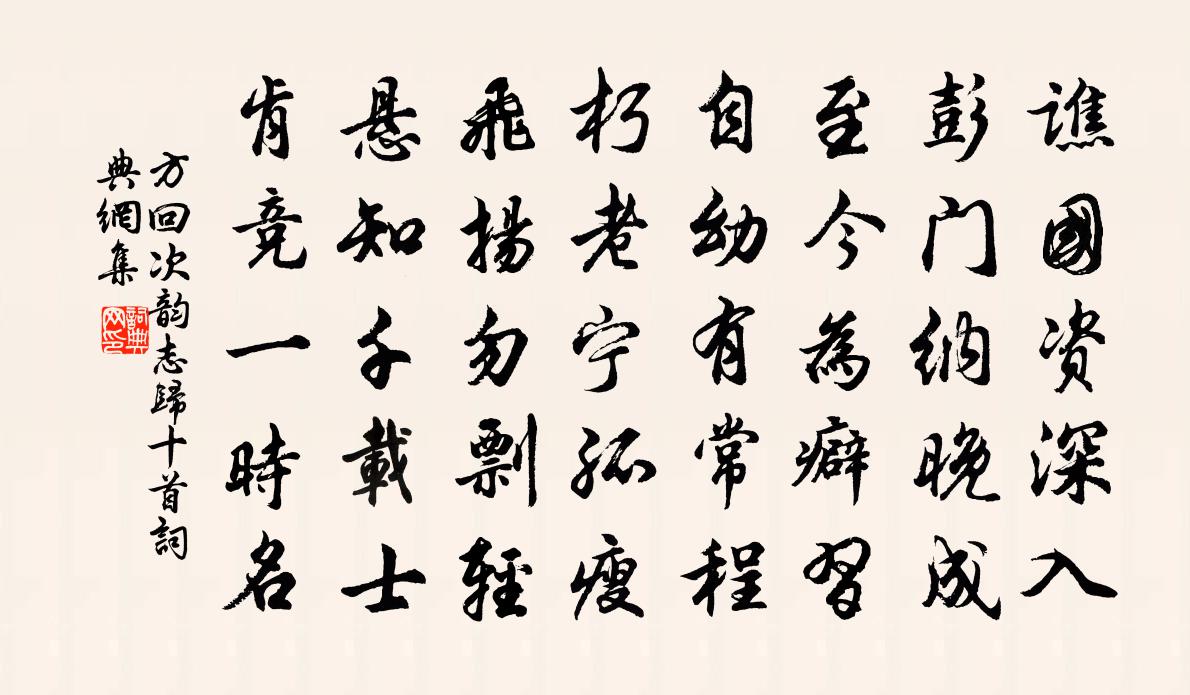 譙國资深入
彭门纳晚成
至今為癖習
自幼有常程
朽老宁孤瘦
飛揚勿剽輕
悬知千載士
肯竞一時名
方回次韵志歸十首詞
典網集
詞典
网印